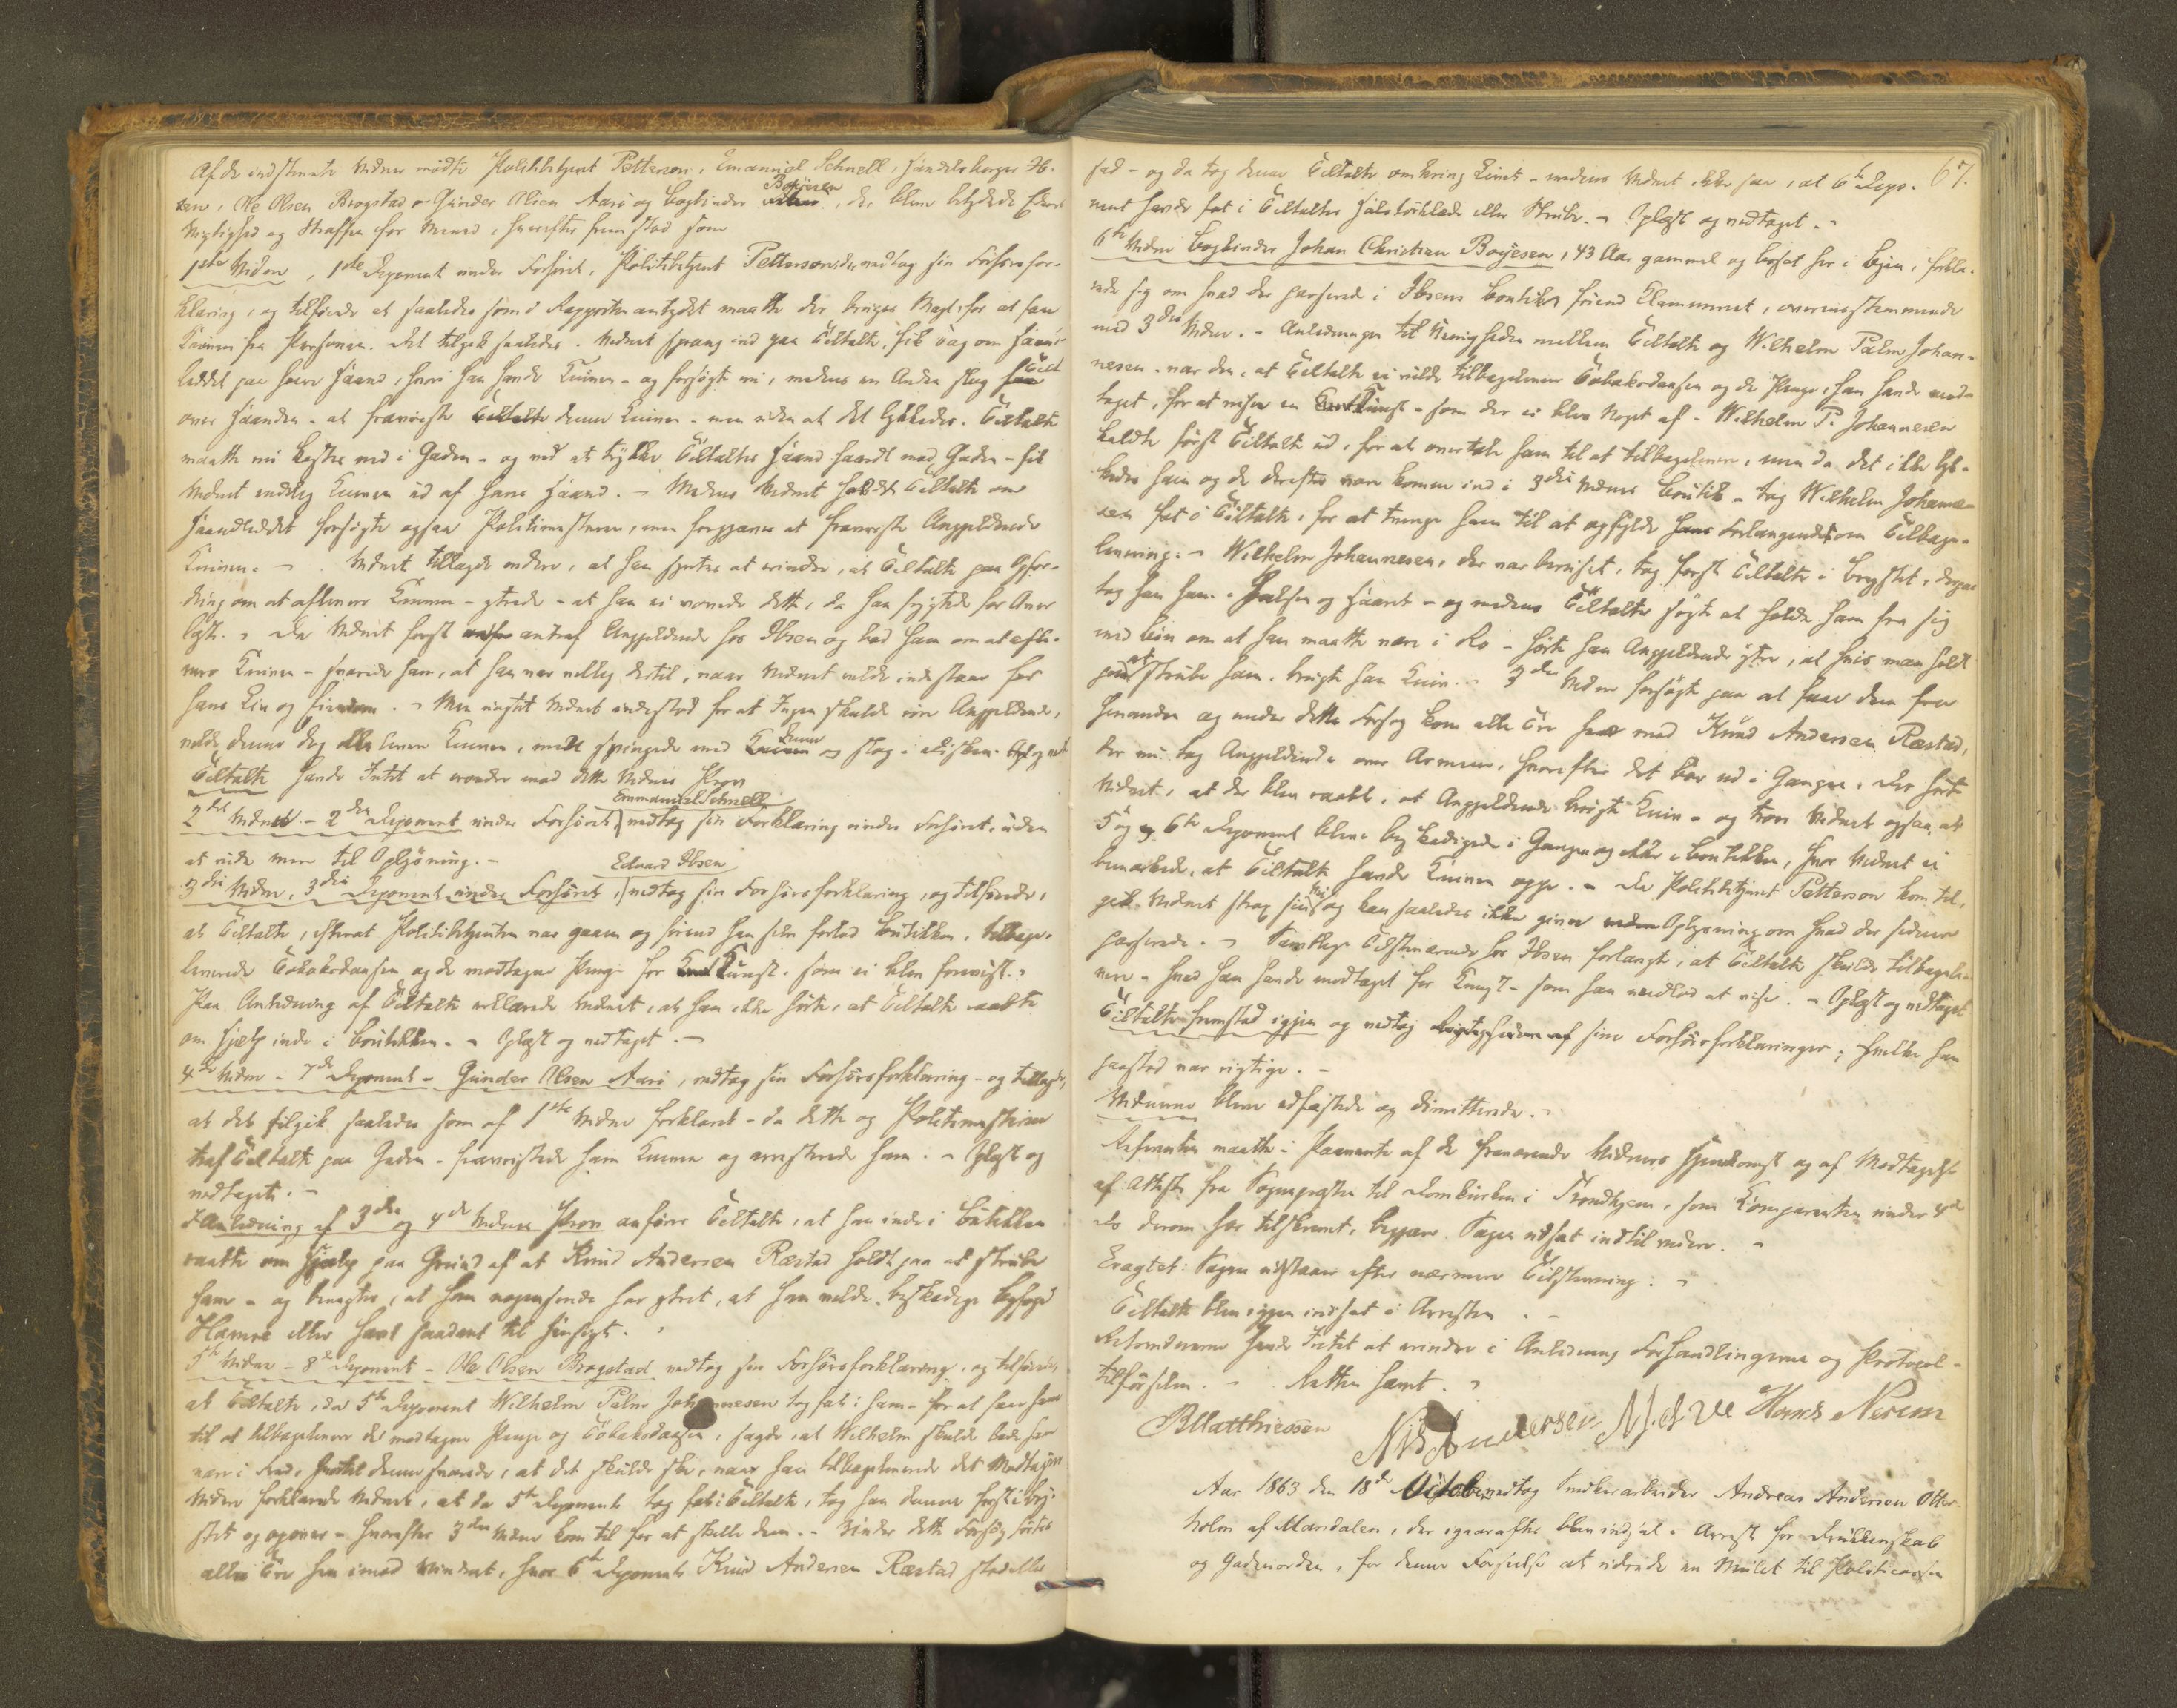 Af de indstevnte Vidner mødte Politibetjent Petterson, Emanuel Schnell, Handelsborger Ib-
sen, Ole Olsen Brogstad – Gunder Olsen Aarø og Bogbinder Boyesen, der bleve betydede Edens
Vigtighed og Straffen for Meened, hvorefter fremstod som
1ste Vidne, 1ste Deponent under Forhøret, Politibetjent Petterson, der vedtog sin Forhørsfor-
klaring, og tilføiede at saaledes som i Rapporten antydet maatte der bruges Magt for at faae
Kniven fra Personen. Det tilgik saaledes. Vidnet sprang ind paa Tiltalte, fik Tag om Haand-
leddet paa høire Haand, hvori han havde Kniven – og forsøgte nu, medens en Anden slog Tilt.
over Haanden – at fravriste Tiltalte denne Kniven – men uden at det lykkedes. Tiltalte
maatte nu kastes ned i Gaden – og ved at trykke Tiltaltes Haand haardt mod Gaden – fik
Vidnet endelig Kniven ud af hans Haand. – Medens Vidnet holdt Tiltalte om
Haandleddet forsøgte ogsaa Politimesteren, men forgjæves at fravriste Angjeldende
Kniven. – Vidnet tillagde videre, at han syntes at erindre, at Tiltalte paa Opfor-
dring om at aflevere Kniven – ytrede – at han ei vovede dette, da han frygtede for Aner
løst. – Da Vidnet først antraf Angjeldende hos Ibsen og bad ham om at afle-
vere Kniven – svarede han, at han var villig dertil, naar Vidnet vilde indestaae for
hans Liv og Eiendom. – Men uagtet Vidnet indestod for at Ingen skulde røre Angjeldende,
vilde denne dog ikke levere Kniven, men svingede med denne og slog i Disken. Opl. og vedt.
Tiltalte havde Intet at erindre mod dette Vidnes Prov
Emmanuel Schnell
2det Vidne – 2den Deponent under Forhøret vedtog sin Forklaring under Forhøret, uden
at vide mere til Oplysning. –
Edvard Ibsen
3die Vidne, 3die Deponent under Forhøret, vedtog sin Forhørsforklaring, og tilføiede,
at Tiltalte, efterat Politibetjenten var gaaen og førend han selv forlod Boutikken, tilbage-
leverede Tobaksdaasen og de modtagne Penge for Kunst, som ei blev forevist. –
Paa Anledning af Tiltalte erklærede Vidnet, at han ikke hørte, at Tiltalte raabte
om Hjelp inde i Boutikken. – Oplæst og vedtaget. –
4de Vidne – 7de Deponent – Gunder Olsen Aarø, vedtog sin Forhørsforklaring – og tillagde,
at det tilgik saaledes som af 1ste Vidne forklaret – da dette og Politimesteren
traf Tiltalte paa Gaden – fravristede ham Kniven og arresterede ham. – Oplæst og
vedtaget. –
I Anledning af 3die og 4de Vidnes Prov anførte Tiltalte, at han inde i Butikken
raabte om Hjelp paa Grund af at Knud Andersen Ræstad holdt paa at strube
ham – og benegter, at han nogensinde har ytret, at han vilde beskadige Byfoged
Hamre eller havt saadant til Hensigt.
5te Vidne – 8de Deponent – Ole Olsen Brogstad vedtog sin Forhørsforklaring, og tilføiede,
at Tiltalte, da 5te Deponent Wilhelm Palm Johannesen tog fat i ham – for at faae ham
til at tilbagelevere de modtagne Penge og Tobaksdaasen, sagde, at Wilhelm skulde lade ham
være i Fred, hvortil denne svarede, at det skulde skee, naar han tilbageleverede det Modtagne
Videre forklarede Vidnet, at da 5te Deponent tog fat i Tiltalte, tog han denne først i Bry-
stet og ovover – hvorefter 3die Vidne kom til for at skille dem. – Under dette Forsøg førtes
alle Tre hen imod Vinduet, hvor 6te Deponent Knud Andersen Ræstad stod eller
67.
sad – og da tog denne Tiltalte omkring Livet – medens Vidnet ikke saa, at 6te Depo-
nent havde fat i Tiltaltes Halstørklæde eller Strube. – Oplæst og vedtaget. –
6te Vidne Bogbinder Johan Christian Boyesen, 43 Aar gammel og bosat her i Byen, forkla-
rede sig om hvad der passerede i Ibsens Boutik førend Klammeriet, overensstemmende
med 3die Vidne. – Anledningen til Uenigheden mellem Tiltalte og Wilhelm Palm Johan-
nesen var den, at Tiltalte ei vilde tilbagelevere Tobaksdaasen og de Penge, han havde mod-
taget, for at vise en Kunst – som der ei blev Noget af. – Wilhelm P. Johannesen
kaldte først Tiltalte ud, for at overtale ham til at tilbagelevere, men da det ikke lyk-
kedes ham og de derefter vare komne ind i 3die Vidnes Boutik – tog Wilhelm Johanne-
sen fat i Tiltalte, for at tvinge ham til at opfylde Forlangendet om Tilbage-
levering. – Wilhelm Johannesen, der var beruset, tog først Tiltalte i Brystet, derpaa
tog han ham i Halsen og Haaret – og medens Tiltalte søgte at holde ham fra sig
med Bøn om at han maatte være i Ro – hørte han Angjeldende ytre, at hvis man holdt
paa at strube ham, brugte han Kniv. – 3die Vidne forsøgte paa at faae dem fra
hinanden og under dette Forsøg kom alle Tre hen mod Knud Andersen Ræstad,
der nu tog Angjeldende over Armene, hvorefter det bar ud i Gangen. Der hørte
Vidnet, at der blev raabt, at Angjeldende brugte Kniv – og troer Vidnet ogsaa, at
5te og 6te Deponent bleve beskadigede i Gangen og ikke i Boutikken, hvor Vidnet ei
bemærkede, at Tiltalte havde Kniven oppe. – Da Politibetjent Petterson kom til,
gik Vidnet strax sin Vei og kan saaledes ikke give Oplysning om hvad der senere
passerede. – Samtlige Tilstedeværende hos Ibsen forlangte, at Tiltalte skulde tilbagele-
vere – hvad han havde modtaget for Kunst – som han undlod at vise. – Oplæst og vedtaget
Tiltalte fremstod igjen og vedtog sine Forhørsforklaringer, hvilke han
paastod var rigtige. –
Vidnerne bleve edfæstede og dimitterede. –
Referenten maatte i Paavente af de fraværende Vidners Hjemkomst og af Modtagelse
af Attest fra Sognepresten til Domkirken i Trondhjem, som Komparenten under 4de
ds derom har tilskrevet, begjære Sagen udsat indtil videre. –
Eragtet: Sagen udstaaer efter nærmere Tilstevning. –
Tiltalte blev igjen indsat i Arresten. –
Retsvidnerne havde Intet at erindre i Anledning Forhandlingerne og Protokol-
tilførselen. – Retten hævet. –
BMatthiessen Nils Andersen Hans Nerem
Aar 1863 den 18de October vedtog Snedkerarbeider Andreas Andersen Otter-
holm af Mandalen, der igaaraftes blev indsat i Arrest for Drukkenskab
og Gadeuorden, for denne Forseelse at udrede en Mulct til Politicassen